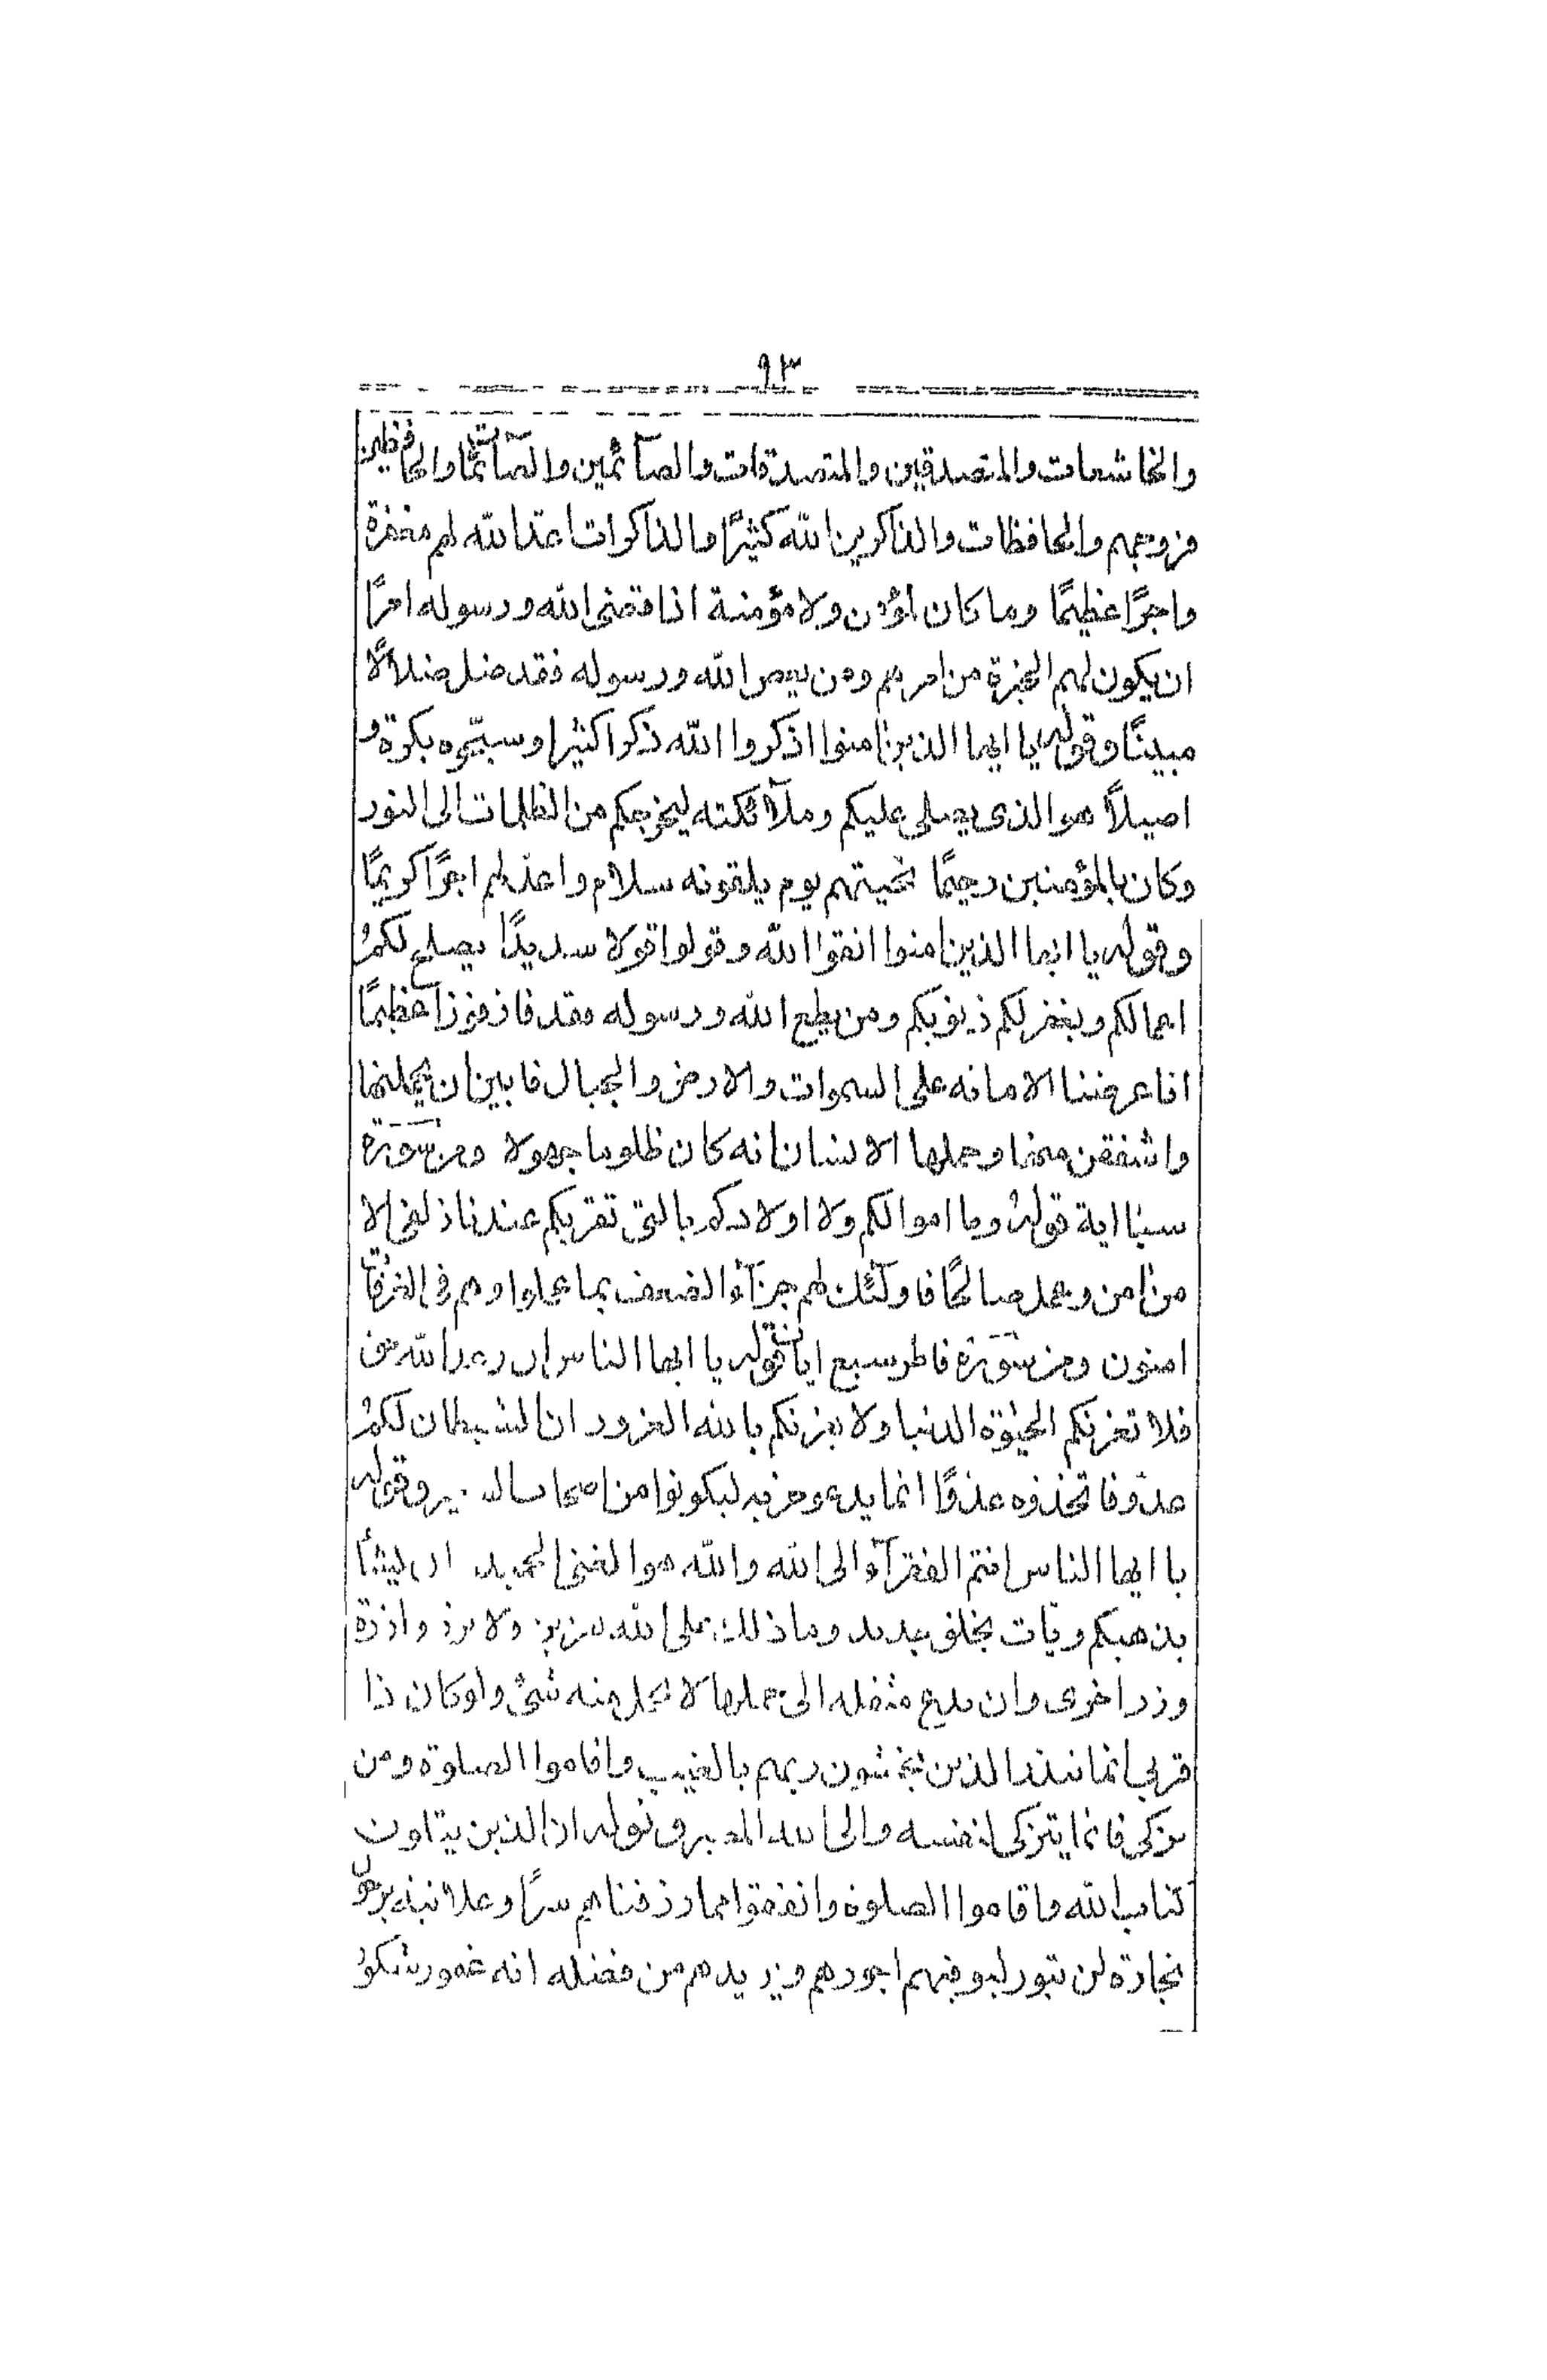 ٩٣
والخاشعات والمتصدقين والمتصدقات والصآئمين والصآئمات والحافظين
فروجهم والحافظات والذاكرين الله كثيرًا والذاكرات اعد الله لهم مغفرة
واجرًا عظيمًا وما كان لمؤمن ولا مؤمنة اذا قضى الله ورسوله امرًا
ان يكون لهم الخيرة من امرهم ومن يعص الله ورسوله فقد ضل ضلالًا
مبينًا وقوله يا ايها الذين امنوا اذكروا الله ذكرا كثيرا وسبّحوه بكرة و
اصيلًا هو الذى يصلى عليكم وملآئكته ليخرجكم من الظلمات الى النور
وكان بالمؤمنين رحيمًا تحيتهم يوم يلقونه سلام واعدّ لهم اجرًا كريمًا
وقوله يا ايها الذين امنوا اتقوا الله وقولوا قولا سديدًا يصلح لكم
اعمالكم ويغفر لكم ذنوبكم ومن يطع الله ورسوله فقد فاز فوزًا عظيمًا
انا عرضنا الامانه على السموات والارض والجبال فابين ان يحملنها
واشفقن منها وحملها الانسان انه كان ظلوما جهولا ومن سورة
سبا اية قوله وما اموالكم ولا اولادكم بالتى تقربكم عندنا زلفى الا
من امن وعمل صالحًا فاولئك لهم جزآء الضعف بما عملوا وهم فى الغرفات
امنون ومن سورة فاطر سبع ايات قوله يا ايها الناس ان وعد الله حق
فلا تغرنكم الحيوة الدنيا ولا يغرنكم بالله الغرور ان الشيطان لكم
عدوّ فاتخذوه عدوًا انما يدعو حزبه ليكونوا من اصحاب وقوله
يا ايها الناس انتم الفقرآء الى الله والله هو الغنى الحميد ان يشأ
يذهبكم ويات بخلق جديد وما ذلك على الله بعزيز ولا تزر وازرة
وزر اخرى وان تدع مثقلة الى حملها لا يحمل منه شئ ولو كان ذا
قربى انما تنذر الذين يخشون ربهم بالغيب واقاموا الصلوة ومن
تزكى فانما يتزكى لنفسه والى الله المصير وقوله ان الذين يتلون
كتاب الله واقاموا الصلوة وانفقوا مما رزقناهم سرًا وعلانية يرجون
تجارة لن تبور ليوفيهم اجورهم ويزيدهم من فضله انه غفور شكور